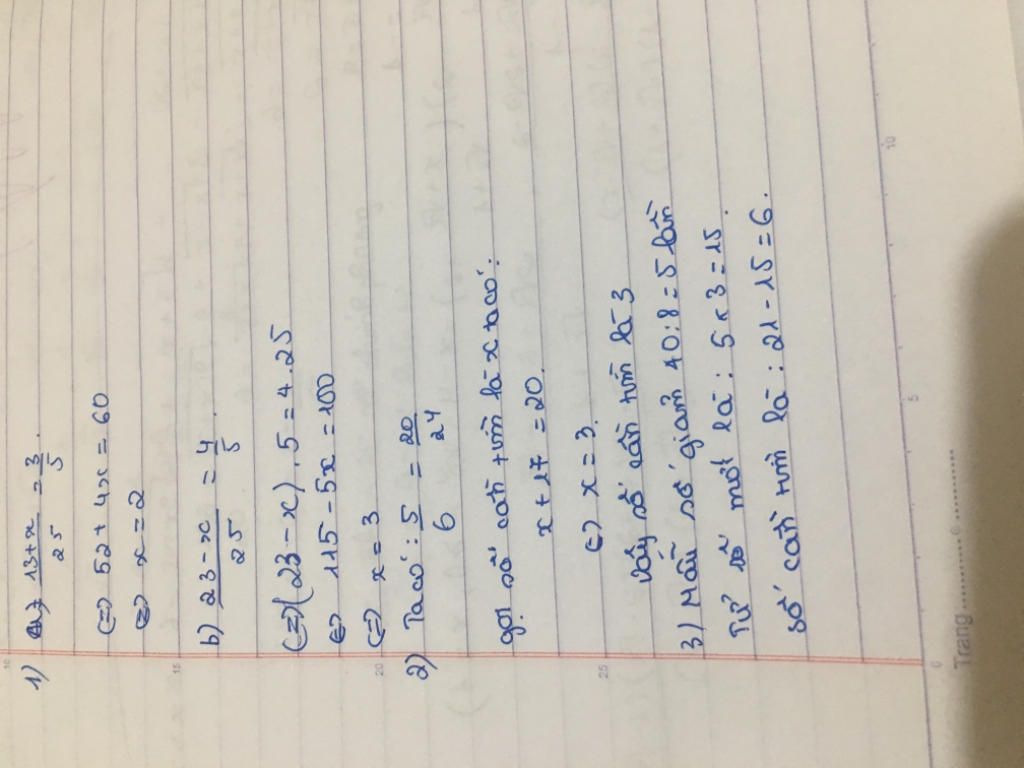 1) a) 13+x / 25 = 3/5.
(=) 52 + 4x = 60
(=) x = 2
b) 23-x / 25 = 4/5.
(=) (23-x).5 = 4.25
(=) 115 - 5x = 100
(=) x = 3
2) Ta có: 5/6 = 20/24
gọi số cần tìm là x ta có:
x + 17 = 20.
(=) x = 3.
Vậy số cần tìm là 3
3) Mẫu số giảm 40:8 = 5 lần
Tử số mới là: 5 x 3 = 15.
Số cần tìm là: 21 - 15 = 6.
Trang
15
20
25
0
5
10